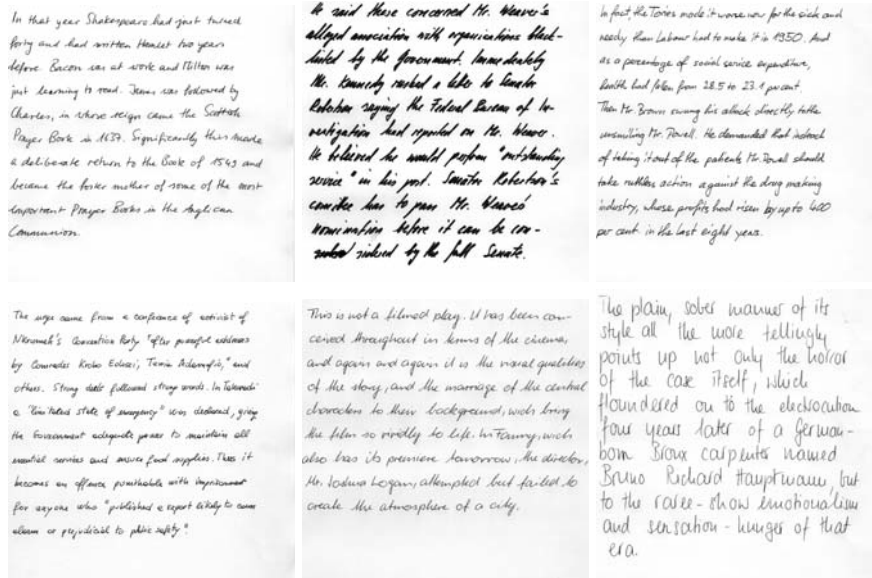 In that year Shakespeare had just turned
forty and had written Hamlet two years
before. Bacon was at work and Milton was
just learning to read. James was followed by
Charles, in whose reign came the Scottish
Prayer Book in 1637. Significantly this made
a deliberate return to the Book of 1549 and
became the foster mother of some of the most
important Prayer Books in the Anglican
Communion.
He said these concerned Mr. Weaver's
alleged association with organisations black-
listed by the Government. Immediately
Mr. Kennedy rushed a letter to Senator
Robertson saying the Federal Bureau of In-
vestigation had reported on Mr. Weaver.
He believed he would perform "outstanding
service" in his post. Senator Robertson's
comitee has to pass Mr. Weaver's
nomination before it can be con-
sidered by the full Senate.
In fact, the Tories made it worse now for the sick and
needy than Labour had to make it in 1950. And
as a percentage of social service expenditure,
health had fallen from 28.5 to 23.1 per cent.
Then Mr. Brown swung his attack directly to the
unsmiling Mr. Powell. He demanded that instead
of taking it out of the patients Mr. Powell should
take ruthless action against the drug making
industry, whose profits had risen by up to 400
per cent. in the last eight years.
The urge came from a conference of activist of
Nkrumah's Convention Party "after powerful addresses
by Comrades Krobo Edusei, Tawia Adamafio," and
others. Strong deeds followed strong words. In Takoradi
a "limitated state of emergency" was declared, giving
the Government adequate power to maintain all
essential services and answer food supplies. Thus it
becomes an offence punishable with imprisonment
for anyone who "published a report likely to cause
alarm or prejudicial to public safety".
This is not a filmed play. It has been con-
ceived throughout in terms of the cinema,
and again and again it is the visual qualities
of the story, and the marriage of the central
characters to their background, wich bring
the film so vividly to life. In Fanny, wich
also has its premiere tomorrow, the director,
Mr. Joshua Logan, attempted but failed to
create the atmosphere of a city.
The plain, sober manner of its
style all the more tellingly
points up not only the horror
of the case itself, which
floundered on to the electrocution
four years later of a German-
born Bronx carpenter named
Bruno Richard Hauptmann, but
to the raree-show emotionalism
and sensation-hunger of that
era.